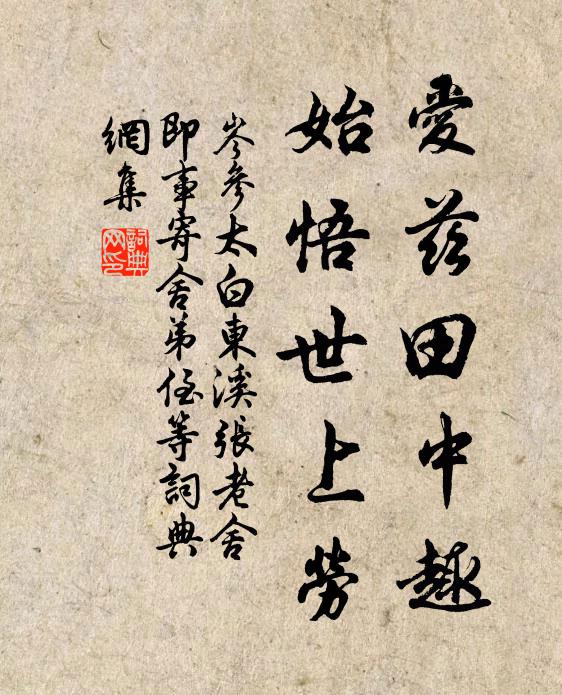 愛茲田中趣
始悟世上勞
岑參太白東溪張老舍
即事寄舍弟侄等詞典
網集
詞典网印